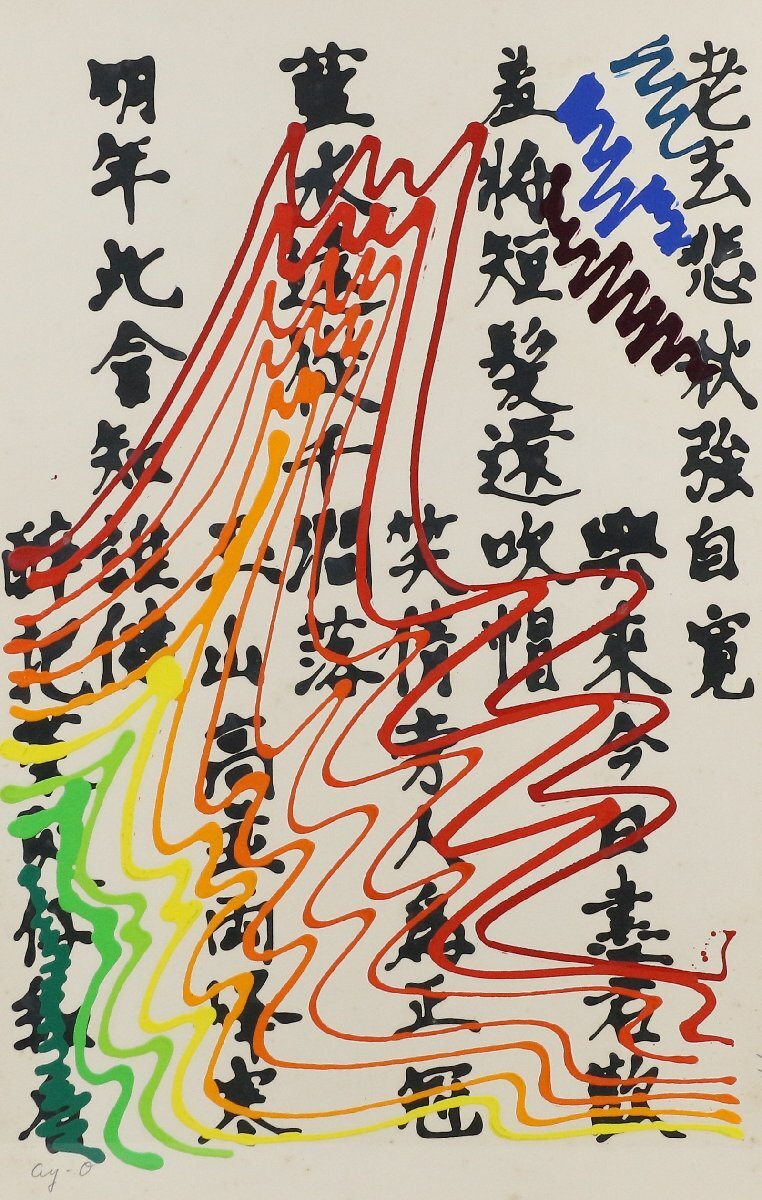 老去悲秋強自寬
興來今日盡君歡
羞將短髮還吹帽
笑倩旁人為正冠
藍水遠從千澗落
玉山高並兩峯寒
明年此會知誰健
醉把茱萸仔細看
ay-o